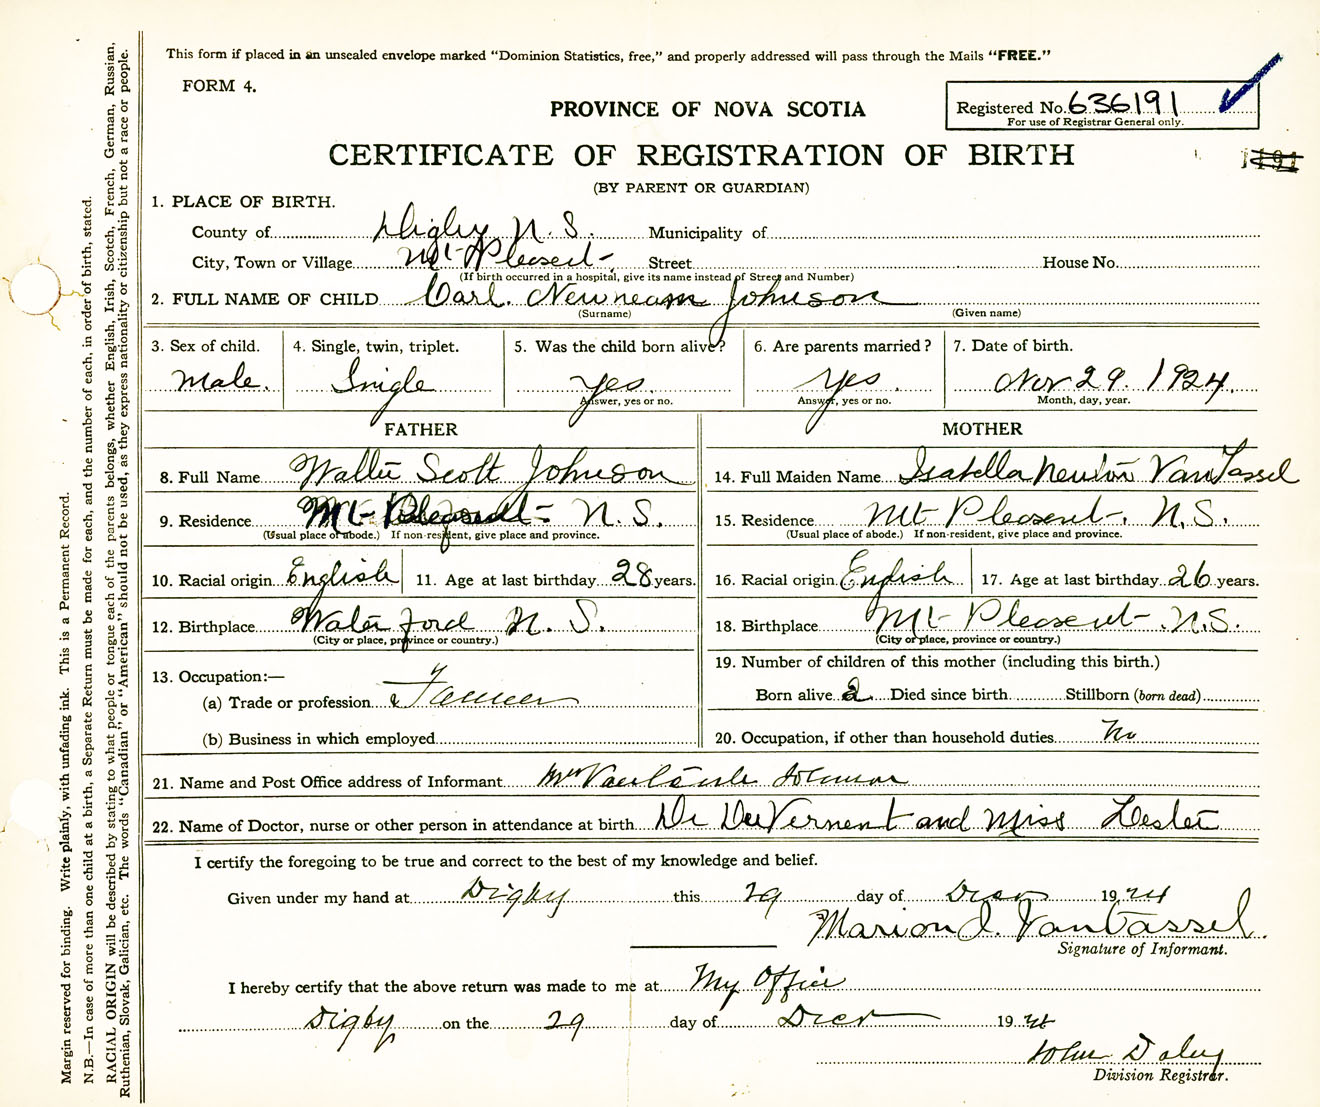 This form if placed in an unsealed envelope marked "Dominion Statistics, free," and properly addressed will pass through the Mails "FREE."
FORM 4.
Registered No. 636191
For use of Registrar General only.
PROVINCE OF NOVA SCOTIA
CERTIFICATE OF REGISTRATION OF BIRTH
(BY PARENT OR GUARDIAN)
1. PLACE OF BIRTH.
County of Digby N. S. Municipality of
City, Town or Village Mt Pleasent Street House No.
(If birth occurred in a hospital, give its name instead of Street and Number)
2. FULL NAME OF CHILD Carl. Newneam Johnson
(Surname) (Given name)
3. Sex of child. 4. Single, twin, triplet. 5. Was the child born alive? 6. Are parents married? 7. Date of birth.
Male. Snigle Yes. Yes. Nov 29. 1924.
Answer, yes or no. Answer, yes or no. Month, day, year.
FATHER MOTHER
8. Full Name Walter Scott Johnson 14. Full Maiden Name Isabella Newton VanTassel
9. Residence Mt Pleasent N. S. 15. Residence Mt Pleasent. N. S.
(Usual place of abode.) If non-resident, give place and province. (Usual place of abode.) If non-resident, give place and province.
10. Racial origin English 11. Age at last birthday 28 years. 16. Racial origin English 17. Age at last birthday 26 years.
12. Birthplace Waterford N. S. 18. Birthplace Mt Pleasent. N. S.
(City or place, province or country.) (City or place, province or country.)
13. Occupation:— 19. Number of children of this mother (including this birth.)
(a) Trade or profession Farmer Born alive 2 Died since birth Stillborn (born dead)
(b) Business in which employed 20. Occupation, if other than household duties No
21. Name and Post Office address of Informant Mrs Johnson
22. Name of Doctor, nurse or other person in attendance at birth Dr DuVernent and Miss Lester
I certify the foregoing to be true and correct to the best of my knowledge and belief.
Given under my hand at Digby this 29 day of Decr 1924
Marion I. VanTassel.
Signature of Informant.
I hereby certify that the above return was made to me at My Office
Digby on the 29 day of Decr 1924
John Daley
Division Registrar.
Margin reserved for binding. Write plainly, with unfading ink. This is a Permanent Record.
N.B.—In case of more than one child at a birth, a Separate Return must be made for each, and the number of each, in order of birth, stated.
RACIAL ORIGIN will be described by stating to what people or tongue each of the parents belongs, whether English, Irish, Scotch, French, German, Russian,
Ruthenian, Slovak, Galician, etc. The words "Canadian" or "American" should not be used, as they express nationality or citizenship but not a race or people.